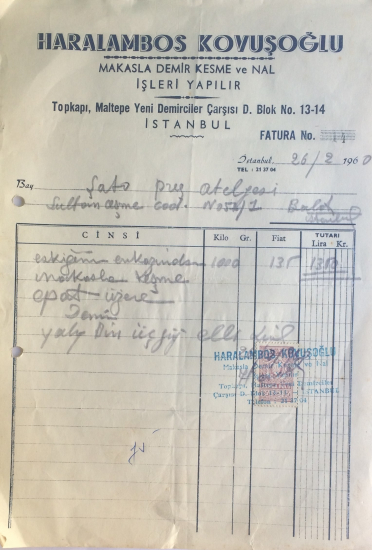 HARALAMBOS KOVUŞOĞLU
MAKASLA DEMİR KESME ve NAL
İŞLERİ YAPILIR
Topkapı, Maltepe Yeni Demirciler Çarşısı D. Blok No. 13-14
İSTANBUL
FATURA No. 14
İstanbul 26/2 1960
TEL : 21 37 04
Bay Şato pres atelyesi
cad. No
CİNSİ Kilo Gr. Fiat TUTARI
Lira Kr.
1000 135 1350
makasla kesme
Demir
yalnız Bin üçyüz elli
HARALAMBOS KOVUŞOĞLU
Makasla Demir Kesme ve Nal
Topkapı, Yeni Demirciler
Çarşısı D. Blok No. 13-14 - İSTANBUL
Telefon : 21-37-04